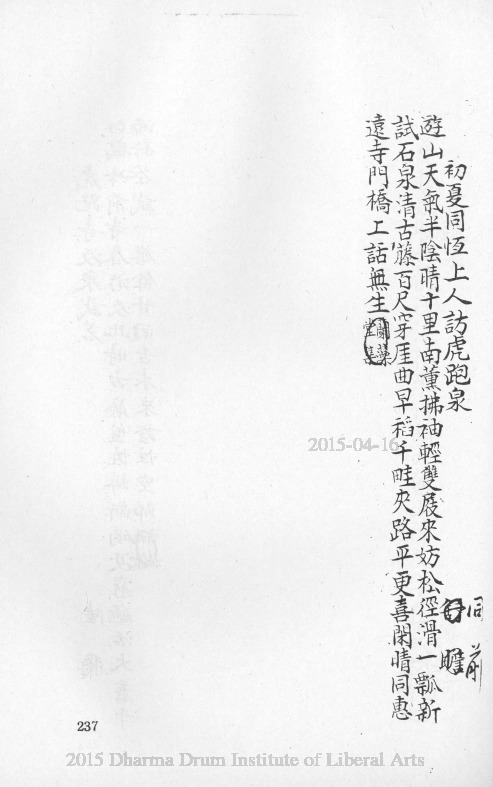 初夏同恆上人訪虎跑泉
同前
瞻
遊山天氣半陰晴十里南薰拂袖輕雙屐來妨松徑滑一瓢新
試石泉清古藤百尺穿厓曲早稻千畦夾路平更喜閑晴同惠
遠寺門橋上話無生
2015-04-16
237
2015 Dharma Drum Institute of Liberal Arts